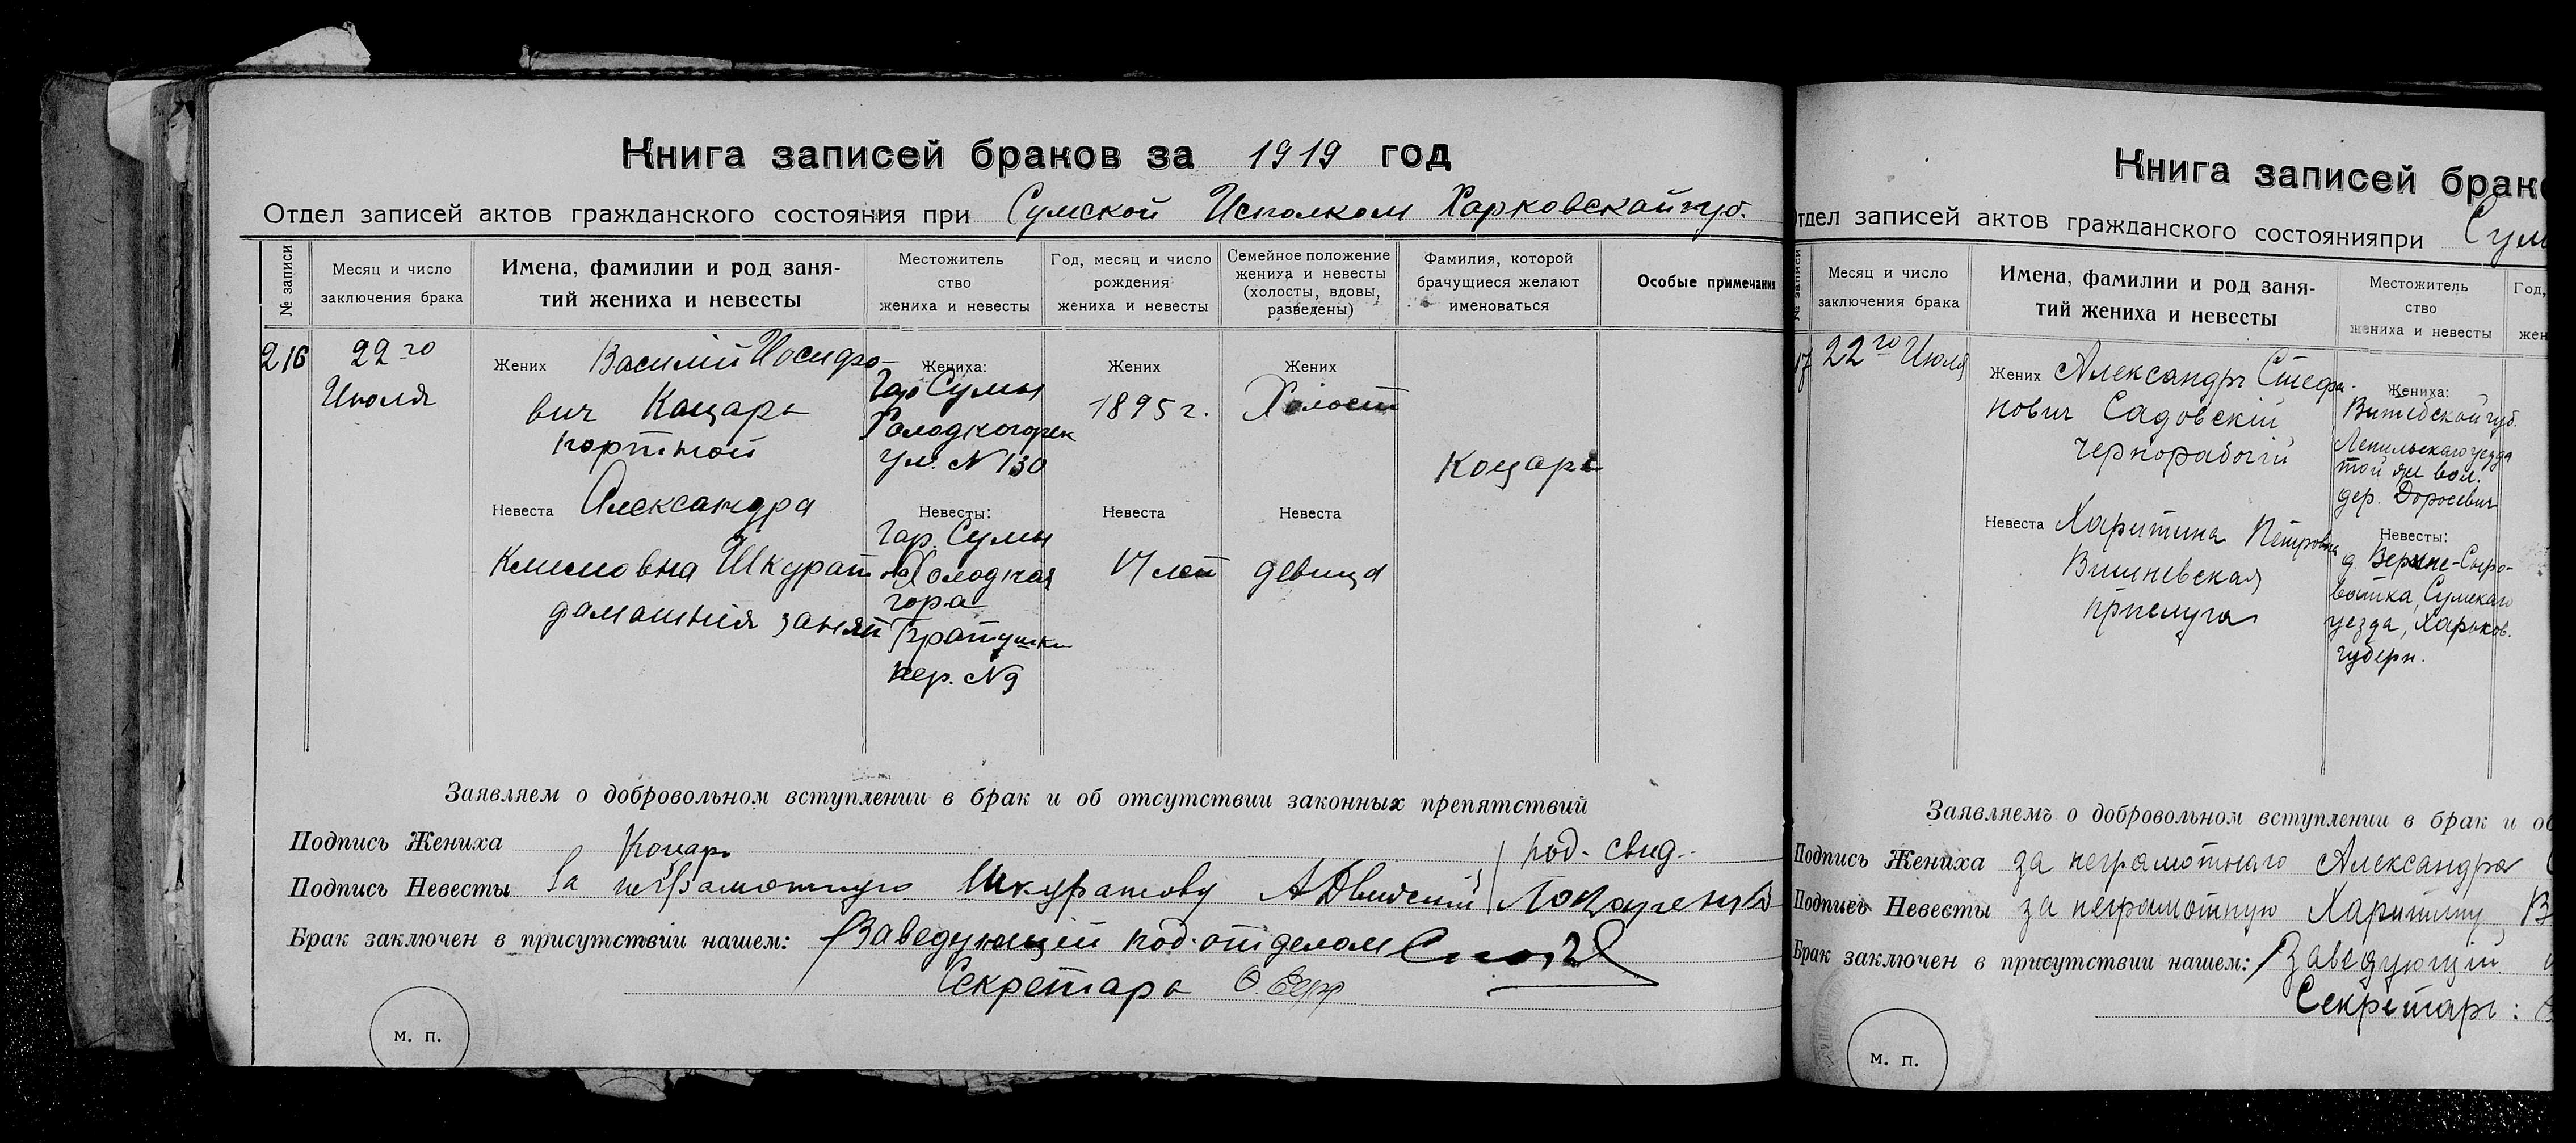 Книга записей браков за 1919 год
Отдел записей актов гражданского состояния при Сумской Исполком Харковской губ.
№ записи
Месяц и число
заключения брака
Имена, фамилии и род заня-
тий жениха и невесты
Местожитель
ство
жениха и невесты
Год, месяц и число
рождения
жениха и невесты
Семейное положение
жениха и невесты
(холосты, вдовы,
разведены)
Фамилия, которой
брачущиеся желают
именоваться
Особые примечания
216
22го
Июля
Жених Василий Иосифо-
вич Коцарь
портной
Невеста Александра
Климовна Шкурат
дамашния занят
Жениха:
Гор Сумы
Холодногорск
ул. N 130
Невесты:
Гор. Сумы
Холодная
гора
пер. N9
Жених
1895 г.
Невеста
17 лет
Жених
Холост
Невеста
девица
Коцарь
Заявляем о добровольном вступлении в брак и об отсутствии законных препятствий
Подпись Жениха Коцарь
под. свид.
Подпись Невесты За неграмотную Шкуратову
Брак заключен в присутствии нашем: Заведующий под.отделом
Секретарь
м. п.
Книга записей брак
Отдел записей актов гражданского состоянияпри Сум
№ записи
Месяц и число
заключения брака
Имена, фамилии и род заня-
тий жениха и невесты
Местожитель
ство
жениха и невесты
Год,
жен
17
22го Июля
Жених Александръ Стефа-
нович Садовский
чернорабочий
Невеста Харитина Петровна
Вишневская
прислуга
Жениха:
Витебской губ.
Лепильскаго уезда
вол.
дер. Доросевич
Невесты:
д. Верхне-Сыро-
ватка, Сумскаго
уезда, Харьков.
губерн.
Заявляемъ о добровольном вступлении в брак и об
Подпись Жениха за неграмотнаго Александра
Подпись Невесты за неграмотную Харитину В
Брак заключен в присутствии нашем: Заведующий
Секретарь:
м. п.